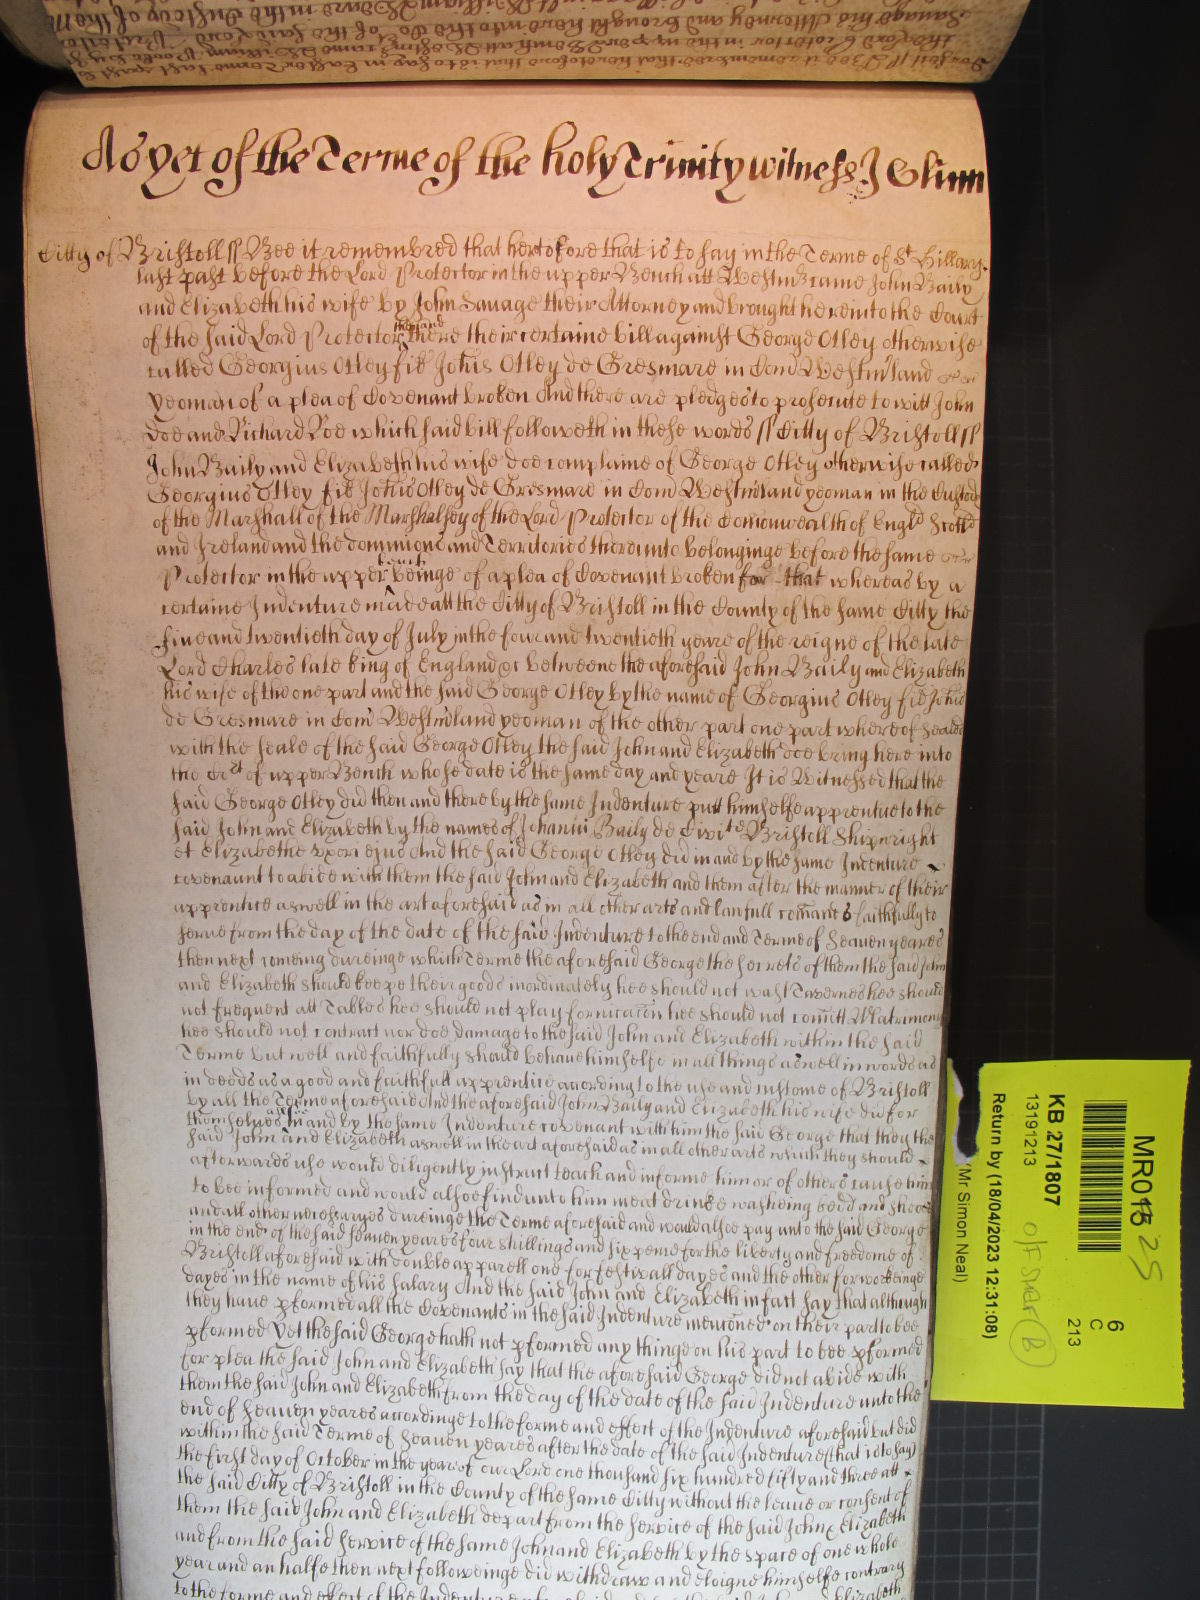 As yet of the Terme of the holy Trinity witnesse J Glinn
Citty of Bristoll ss Bee it remembred that hertofore that is to say in the Terme of St Hillary
last past before the Lord Protector in the upper Bench att Westmr came John Baily
and Elizabeth his wife by John Savage their Attorney and brought here into the Court
of the said Lord Protector then and there their certaine bill against George Otley otherwise
called Georgius Otley fil Johis Otley de Gresmare in Com Westmland
yeoman of a plea of Covenant broken And there are pledges to prosecute to witt John
Doe and Richard Roe which said bill followeth in these words ss Citty of Bristoll ss
John Baily and Elizabeth his wife doe complaine of George Otley otherwise called
Georgius Otley fil Johis Otley de Gresmare in Com Westmland yeoman in the Custody
of the Marshall of the Marshalsey of the Lord Protector of the Comonwealth of Engld Scottd
and Ireland and the dominions and Territories thereunto belonginge before the same
Protector in the upper bench beinge of a plea of Covenant broken for that whereas by a
certaine Indenture made att the Citty of Bristoll in the County of the same Citty the
five and twentieth day of July in the four and twentieth yeare of the reigne of the late
Lord Charles late King of England &c betweene the aforesaid John Baily and Elizabeth
his wife of the one part and the said George Otley by the name of Georgius Otley fil Johis
de Gresmare in Com Westmland yeoman of the other part one part whereof sealed
with the seale of the said George Otley the said John and Elizabeth doe bring here into
the Cort of upper Bench whose date is the same day and yeare It is Witnessed that the
said George Otley did then and there by the same Indenture putt himselfe apprentice to the
said John and Elizabeth by the names of Johannis Baily de Civit Bristoll Shipwright
et Elizabethe uxori ejus And the said George Otley did in and by the same Indenture
covenaunt to abide with them the said John and Elizabeth and them after the manner of their
apprentice aswell in the art aforesaid as in all other arts and lawfull comands faithfully to
serve from the day of the date of the said Indenture to the end and Terme of Seaven yeares
then next comeing dureinge which Terme the aforesaid George the secrets of them the said John
and Elizabeth should keepe their goods inordinately hee should not wast Tavernes hee should
not frequent att Tables hee should not play fornicacon hee should not comitt Matrimony
hee should not contract nor doe damage to the said John and Elizabeth within the said
Terme but well and faithfully should behave himselfe in all things aswell in words as
in deeds as a good and faithfull apprentice acording to the use and custome of Bristoll
by all the Terme aforesaid And the aforesaid John Baily and Elizabeth his wife did for
themselves in and by the same Indenture covenant with him the said George that they the
said John and Elizabeth aswell in the art aforesaid as in all other arts which they should
afterwards use would diligently instruct teach and informe him or of others cause him
to bee informed and would alsoe find unto him meat drinke washeing bedd and shooes
and all other necessaryes dureinge the Terme aforesaid and would alsoe pay unto the said George
in the end of the said seaven yeares four shillings and six pence for the liberty and freedome of
Bristoll aforesaid with double apparell one for festivall dayes and the other for workeinge
dayes in the name of his salary And the said John and Elizabeth in fact say that although
they have pformed all the Covenants in the said Indenture menconed on their part to bee
pformed Yet the said George hath not pformed any thinge on his part to bee pformed
for plea the said John and Elizabeth say that the aforesaid George did not abide with
them the said John and Elizabeth from the day of the date of the said Indenture unto the
end of seaven yeares accordinge to the forme and effect of the Indenture aforesaid but did
within the said Terme of Seaven yeares after the date of the said Indenture (that is to say)
the first day of October in the year of our Lord one thousand six hundred fifty and three att
the said Citty of Bristoll in the County of the same Citty without the leave or consent of
them the said John and Elizabeth depart from the service of the said John & Elizabeth
and from the said service of the same John and Elizabeth by the space of one whole
year and an halfe then next followeinge did withdraw and eloigne himselfe contrary
to the forme and effect of the Indenture
MR0125
6
C
213
KB 27/1807
13191213
Return by (18/04/2023 12:31:08)
(Mr Simon Neal)